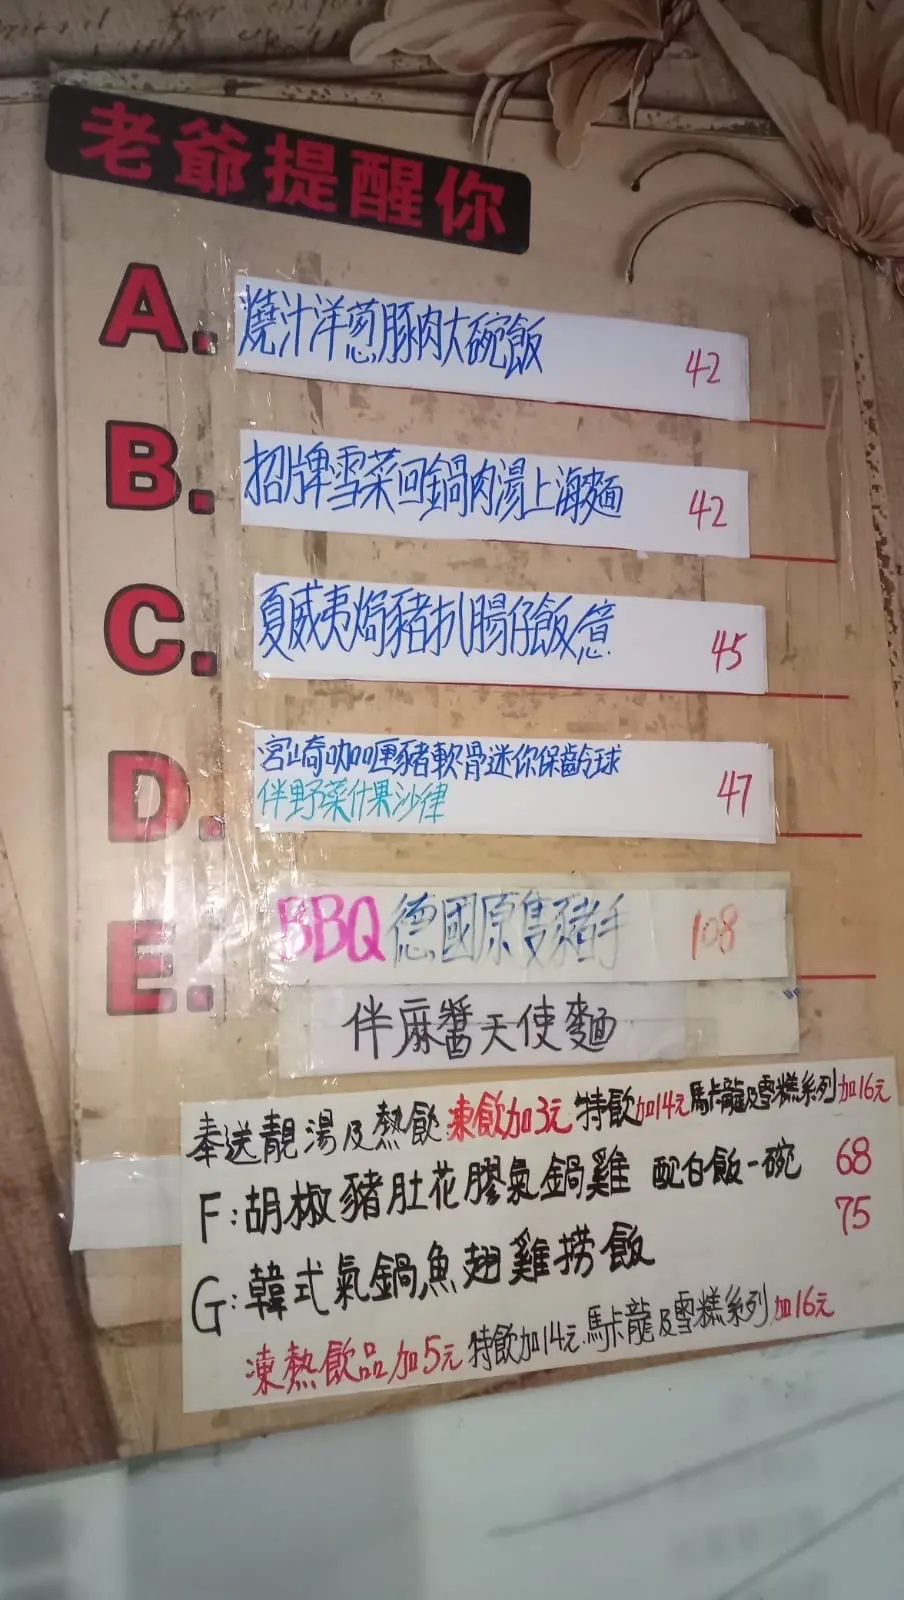 老爺提醒你
A. 燒汁洋葱豚肉大碗飯 42
B. 招牌雪菜回鍋肉湯上海麵 42
C. 夏威夷焗豬扒腸仔飯意 45
D. 宮崎咖喱豬軟骨迷你保齡球 47
伴野菜什果沙律
E. BBQ德國原隻豬手 108
伴麻醬天使麵
奉送靚湯及熱飲 凍飲加3元 特飲加14元 馬卡龍及雪糕系列加16元
F:胡椒豬肚花膠氣鍋雞 配白飯一碗 68
G:韓式氣鍋魚翅雞撈飯 75
凍熱飲品加5元 特飲加14元 馬卡龍及雪糕系列加16元